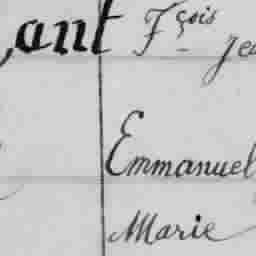 ,ant Fçois Jea
Emmanuel
Marie